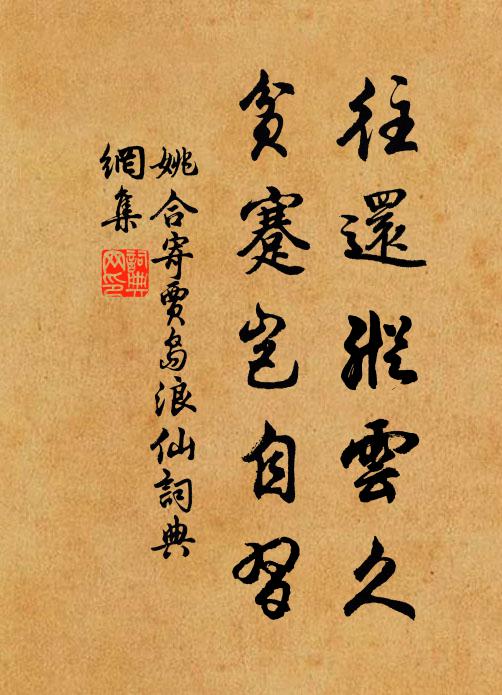 往還縱雲久
貧蹇豈自習
姚合寄賈島浪仙詞典
網集
詞典
网印